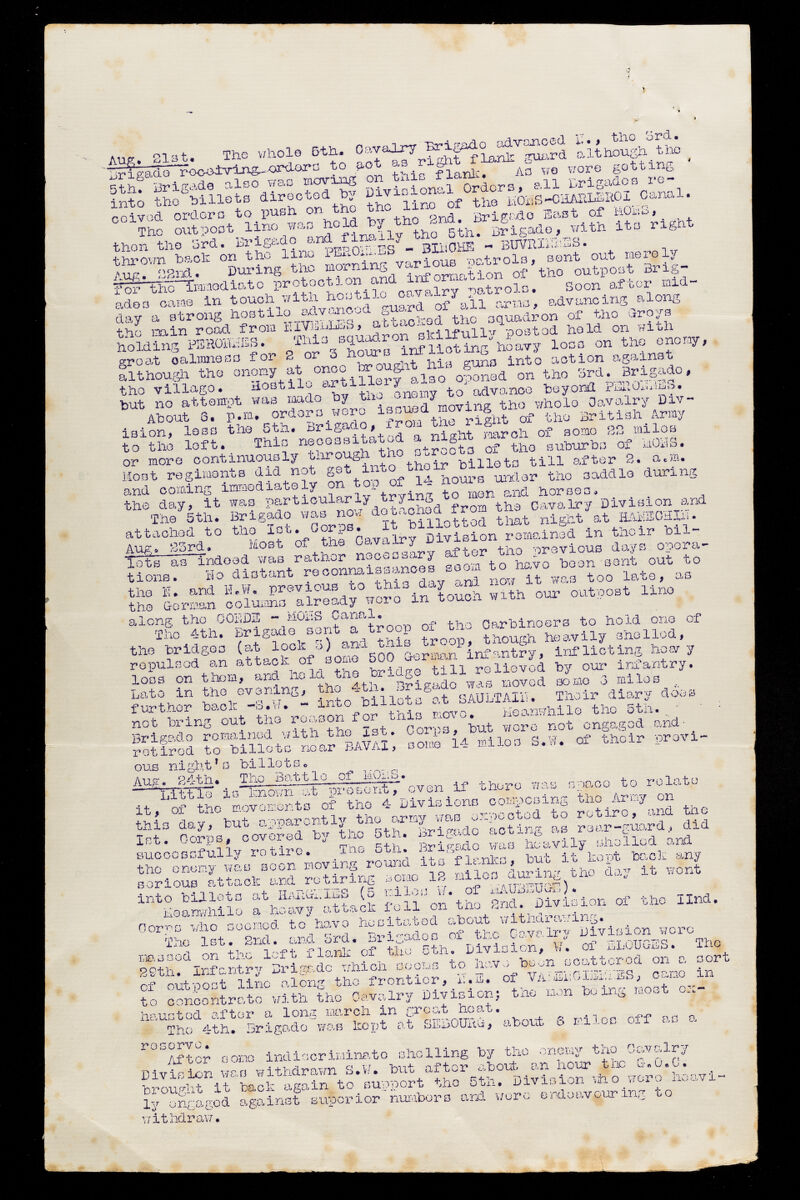 Aug. 21st. The whole 5th. Cavalry Brigade advanced N., the 3rd.
Brigade receiving orders to act as right flank guard although the
5th. Brigade also was moving on this flank. As we were getting
into the billets directed by Divisional Orders, all Brigades re-
ceived orders to push on the the line of the MONS-CHARLEROI Canal.
The outpost line was held by the 2nd. Brigade East of MONS,
then the 3rd. Brigade and finally the 5th. Brigade, with its right
thrown back on the line PERONNES - BINCHE - BUVRINNES.
Aug. 22nd. During the morning various patrols, sent out merely
for the immediate protection and information of the outpost Brig-
ades came in touch with hostile cavalry patrols. Soon after mid-
day a strong hostile advanced guard of all arms, advancing along
the main road from NIVELLES, attacked the squadron of the Greys
holding PERONNES. This squadron skilfully posted held on with
great calmness for 2 or 3 hours inflicting heavy loss on the enemy,
although the enemy at once brought his guns into action against
the village. Hostile artillery also opened on the 3rd. Brigade,
but no attempt was made by the enemy to advance beyond PERONNES.
About 6. p.m. orders were issued moving the whole Cavalry Div-
ision, less the 5th. Brigade, from the right of the British Army
to the left. This necessitated a night march of some 22 miles
or more continuously through the streets of the suburbs of MONS.
Most regiments did not get into their billets till after 2. a.m.
and coming immediately on top of 14 hours under the saddle during
the day, it was particularly trying to men and horses.
The 5th. Brigade was now detached from the Cavalry Division and
attached to the 1st. Corps. It billotted that night at HAMECHIN.
Aug. 23rd. Most of the Cavalry Division remained in their bil-
lets as indeed was rather necessary after the previous days opera-
tions. No distant reconnaissances seem to have been sent out to
the N. and N.W. previous to this day and now it was too late, as
the German columns already were in touch with our outpost line
along the CONDE - MONS Canal.
The 4th. Brigade sent a troop of the Carbineers to hold one of
the bridges (at lock 5) and this troop, though heavily shelled,
repulsed an attack of some 500 German infantry, inflicting heav y
loss on them, and held the bridge till relieved by our infantry.
Late in the evening, the 4th. Brigade was moved some 3 miles
further back -S.W. - into billets at SAULTAIN. Their diary does
not bring out the reason for this move. Meanwhile the 5th.
Brigade remained with the 1st. Corps, but were not engaged and
retired to billets near BAVAI, some 14 miles S.W. of their previ-
ous night's billets.
Aug. 24th. The Battle of MONS.
Little is known at present, even if there was space to relate
it, of the movements of the 4 Divisions composing the Army on
this day, but apparently the army was expected to retire, and the
1st. Corps, covered by the 5th. Brigade acting as rear-guard, did
successfully retire. The 5th. Brigade was heavily shelled and
the enemy was seen moving round its flanks, but it kept back any
serious attack and retiring some 12 miles during the day it went
into billets at HARGNIES (5 miles W. of MAUBEUGE).
Meanwhile a heavy attack fell on the 2nd. Division of the IInd.
Corps who seemed to have hesitated about withdrawing.
The 1st. 2nd. and 3rd. Brigades of the Cavalry Division were
massed on the left flank of the 5th. Division, W. of ELOUGES. The
29th. Infantry Brigade which seems to have been scattered on a sort
of outpost line along the frontier, N.E. of VALENCIENNES, came in
to concentrate with the Cavalry Division; the men being most ex-
hausted after a long march in great heat.
The 4th. Brigade was kept at SEBOURG, about 6 miles off as a
reserve.
After some indiscriminate shelling by the enemy the Cavalry
Division was withdrawn S.W. but after about an hour the G.O.C.
brought it back again to support the 5th. Division who were heavi-
ly engaged against superior numbers and were endeavouring to
withdraw.